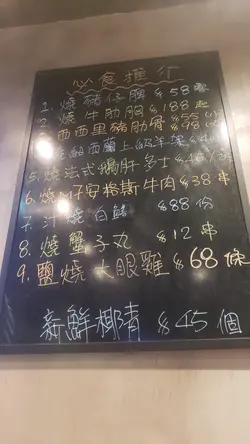 必食推介
1. 燒豬仔腳 $58隻
2. 燒牛肋脷 $188
3. 西西里豬肋骨 $98
紐西蘭上級羊架
5. 燒法式鵝肝多士 $48
6. 燒M7安格斯牛肉 $38串
7. 汁燒白鱔 $88份
8. 燒蟹子丸 $12串
9. 鹽燒大眼雞 $68條
新鮮椰青 $45個